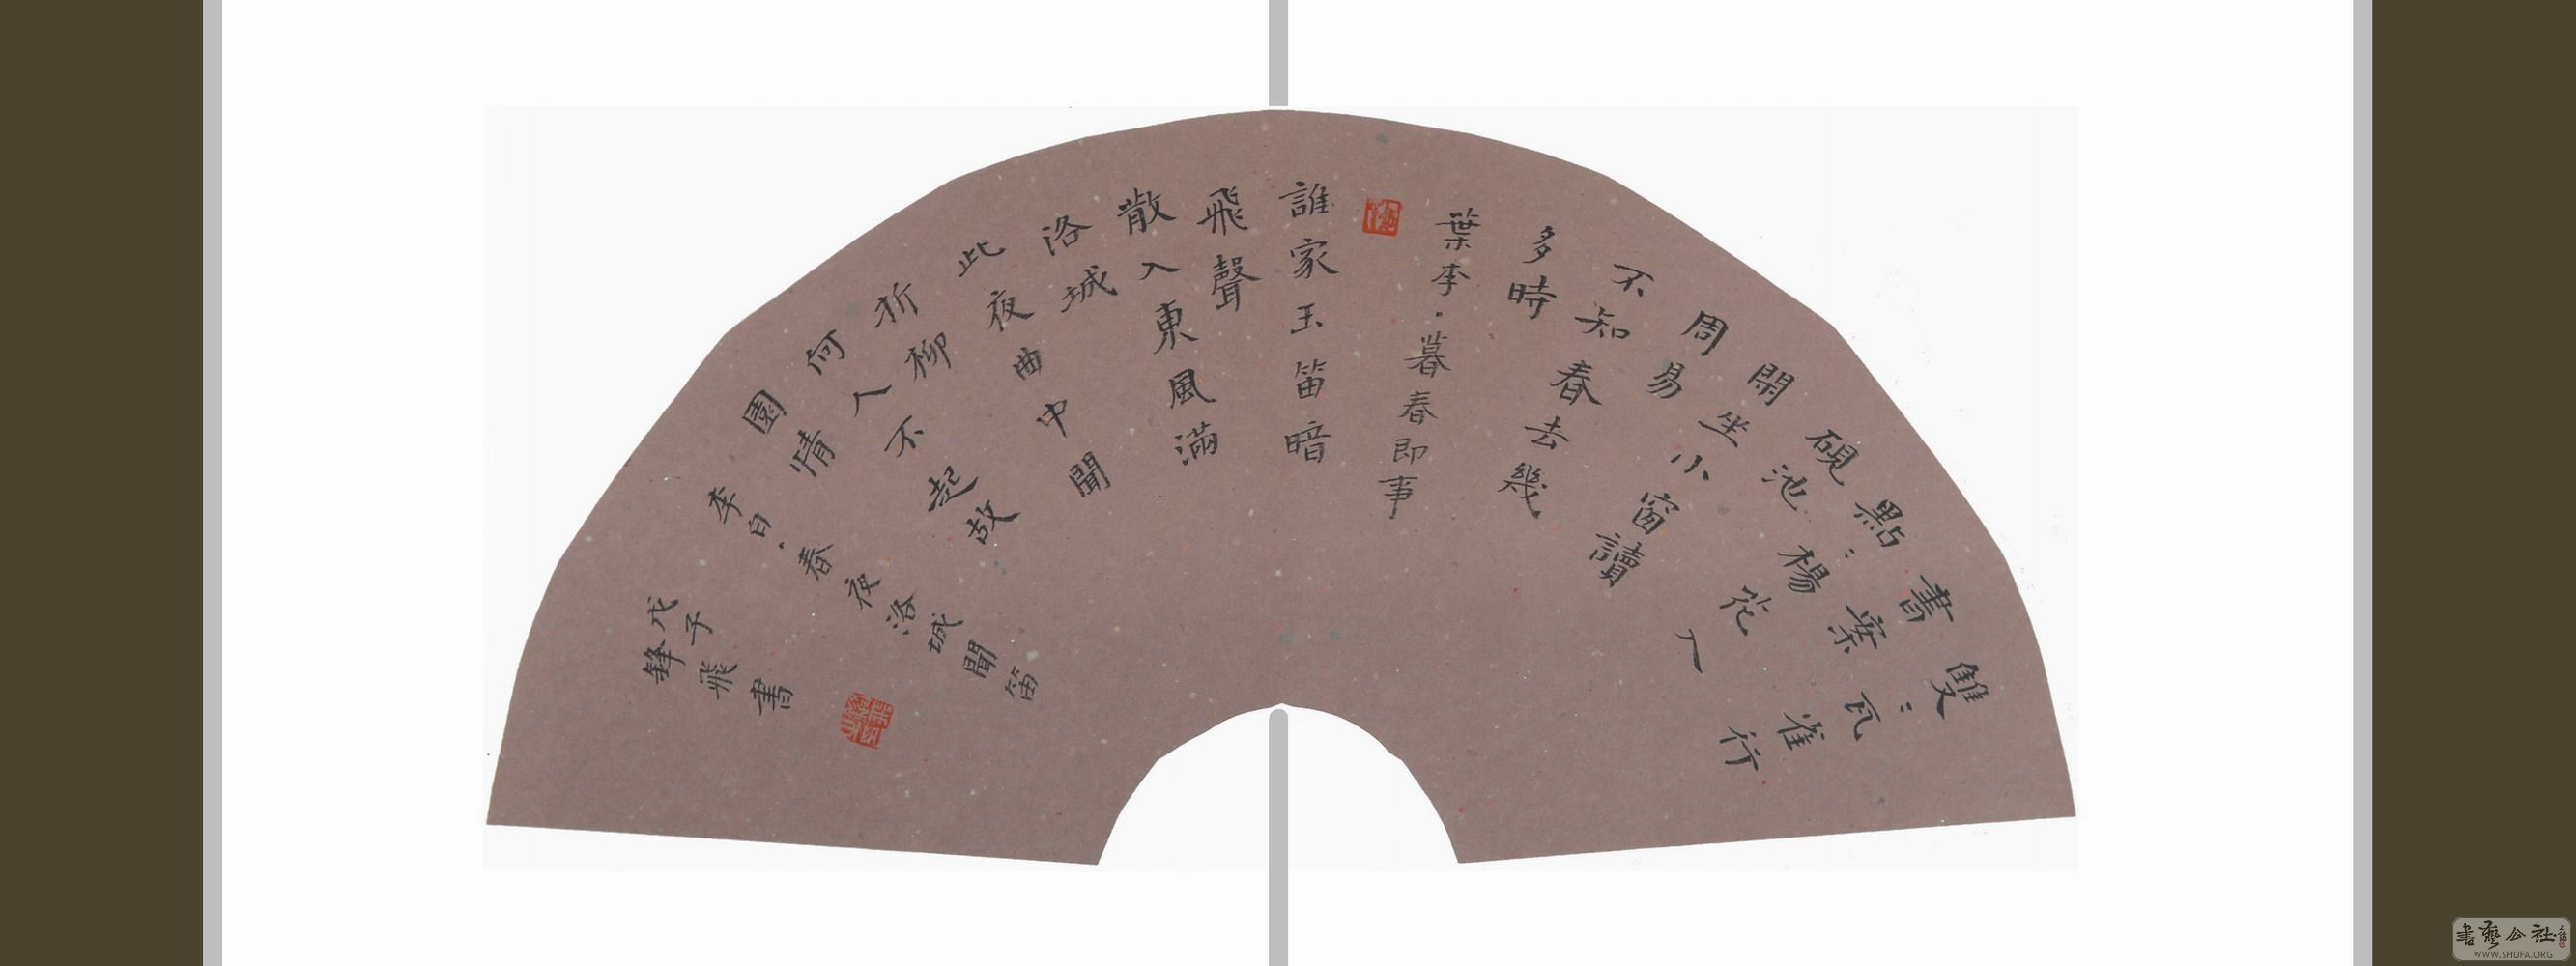 雙〻瓦雀行
書案
點〻楊花入
硯池
閑坐小窗讀
周易
不知春去幾
多時
葉李·暮春即事
誰家玉笛暗
飛聲
散入東風滿
洛城
此夜曲中聞
折柳
何人不起故
園情
李白·春夜洛城聞笛
戊子
鋒飛書
書藝公社
WWW.SHUFA.ORG